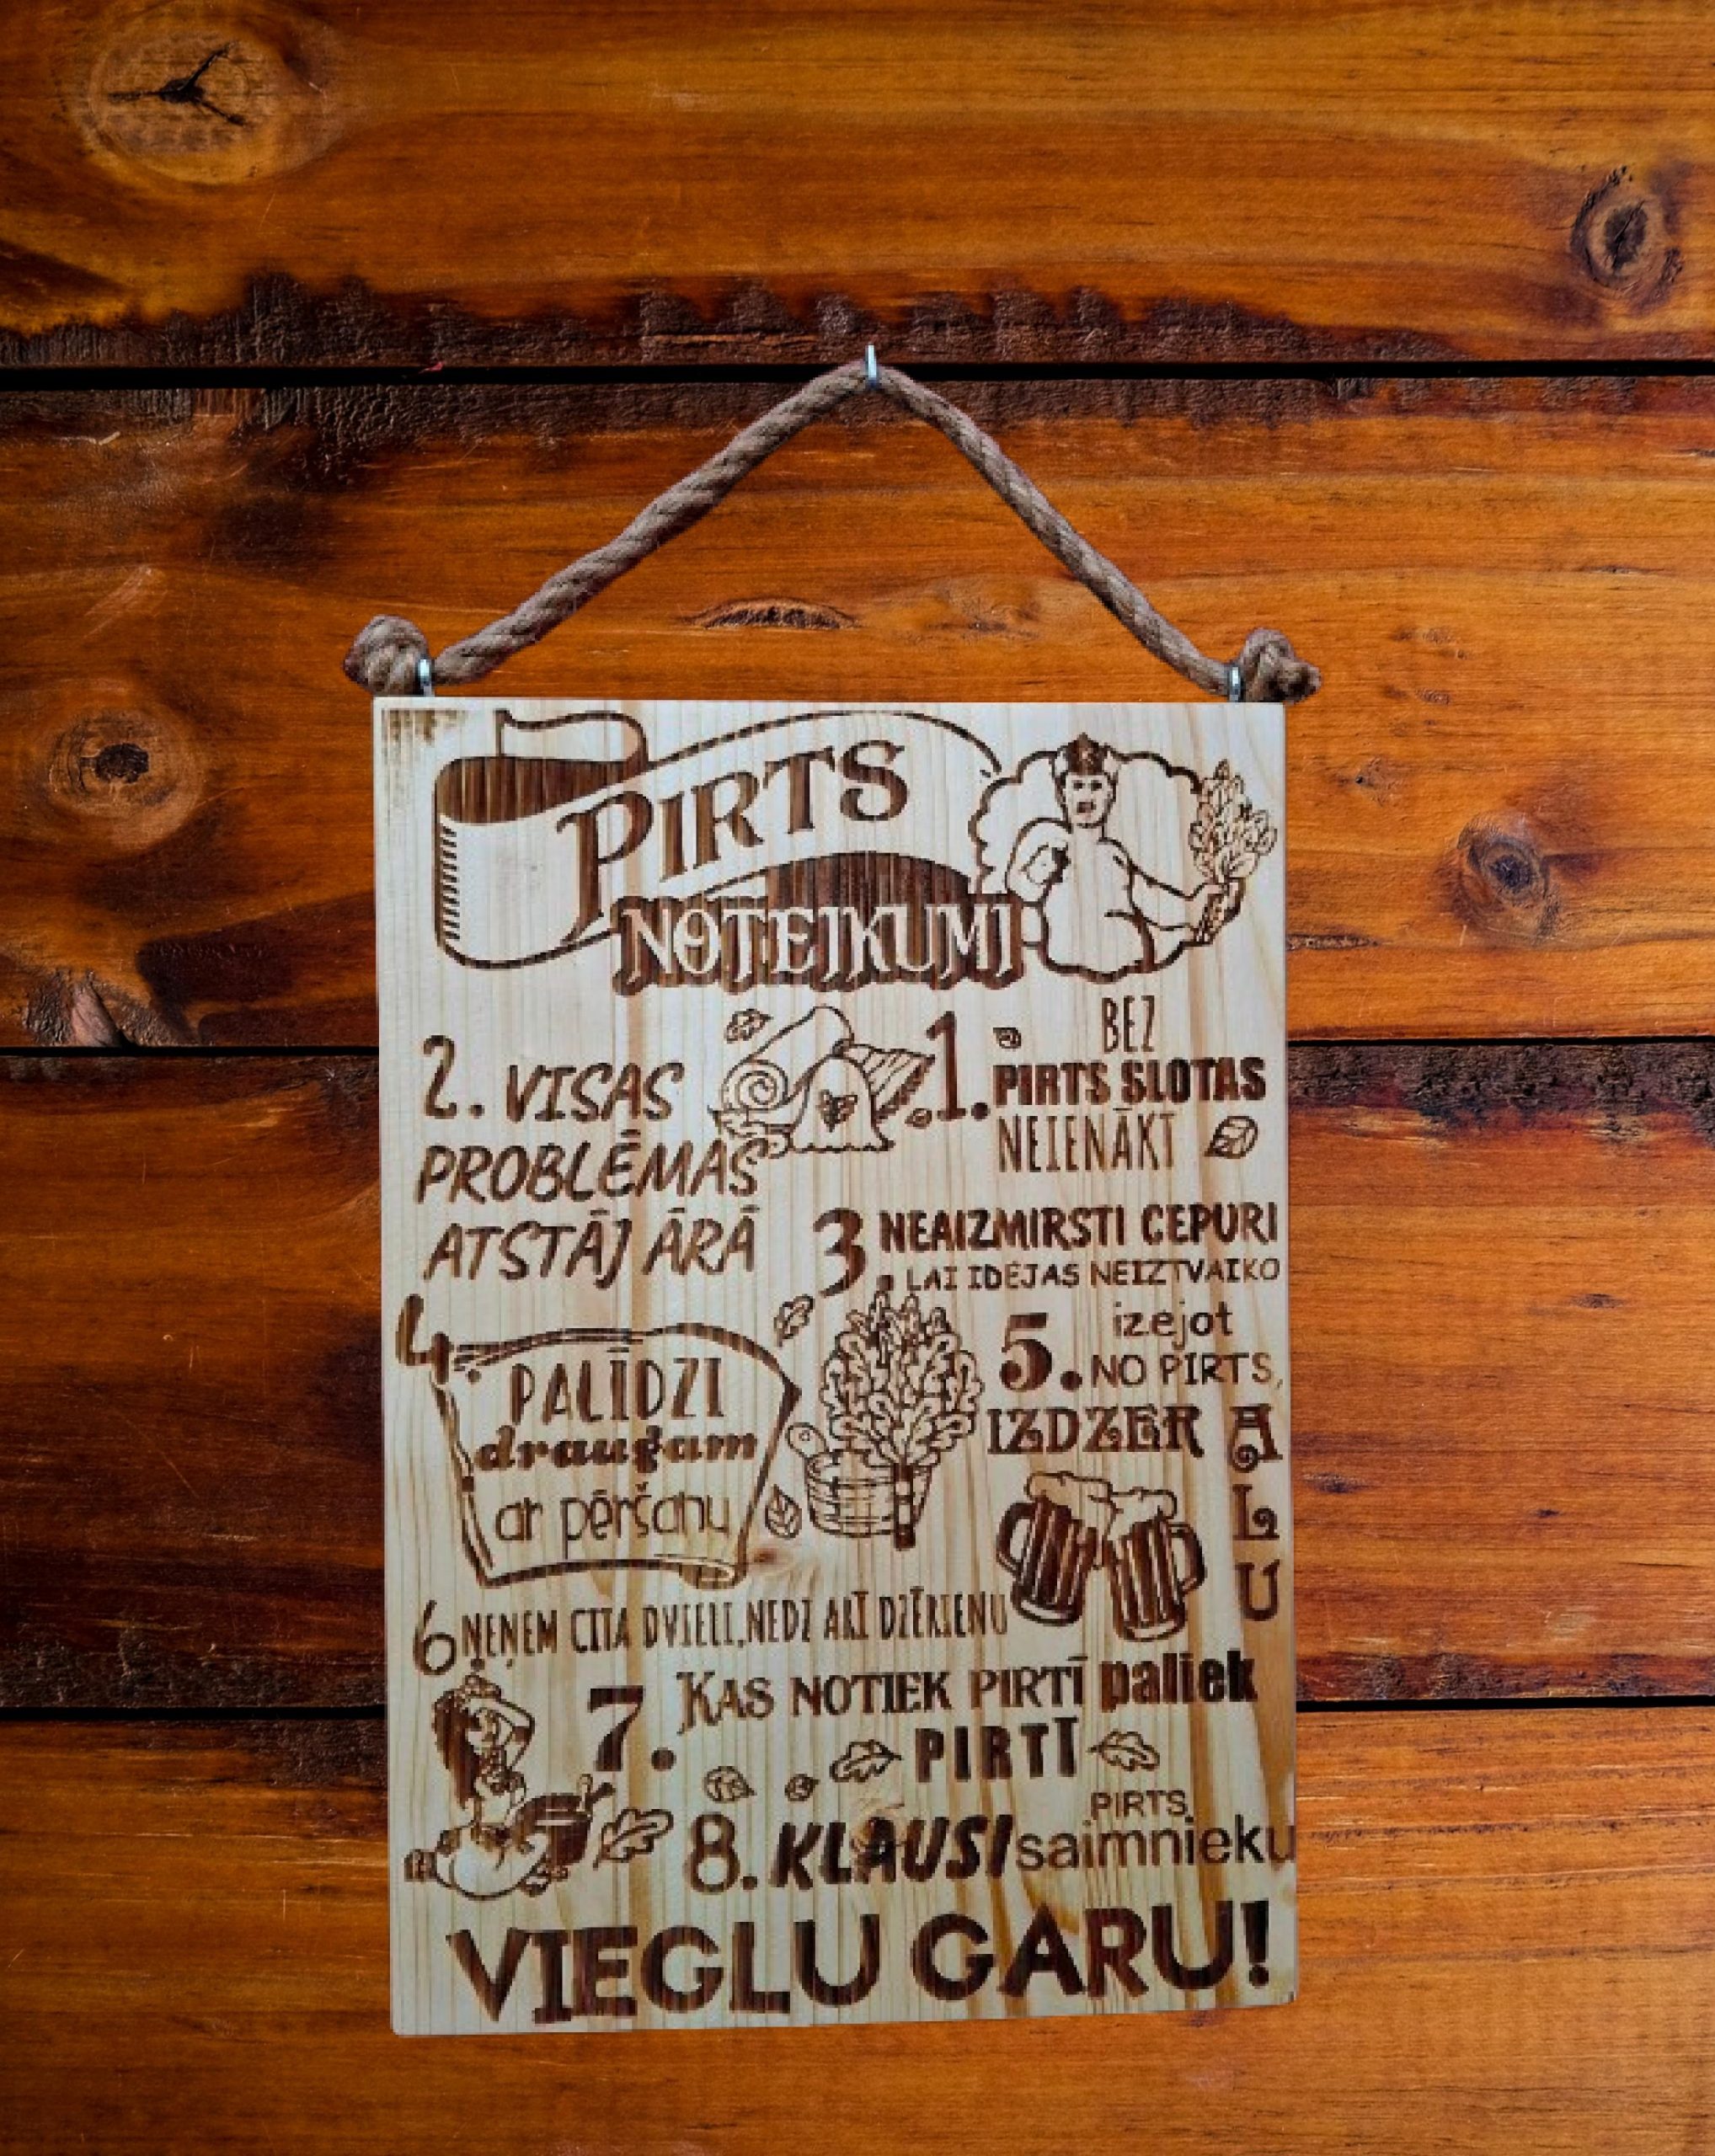 PIRTS
NOTEIKUMI
1. BEZ
PIRTS SLOTAS
NEIENĀKT
2. VISAS
PROBLĒMAS
ATSTĀJ ĀRĀ
3. NEAIZMIRSTI CEPURI
LAI IDEJAS NEIZTVAIKO
4. PALĪDZI
draugam
ar pēršanu
5. izejot
NO PIRTS,
IZDZER ALU
6 ŅEŅEM CITA DVIELI, NEDZ ARĪ DZĒRIENU
7. KAS NOTIEK PIRTĪ paliek
PIRTĪ
8. KLAUSI PIRTS
saimnieku
VIEGLU GARU!